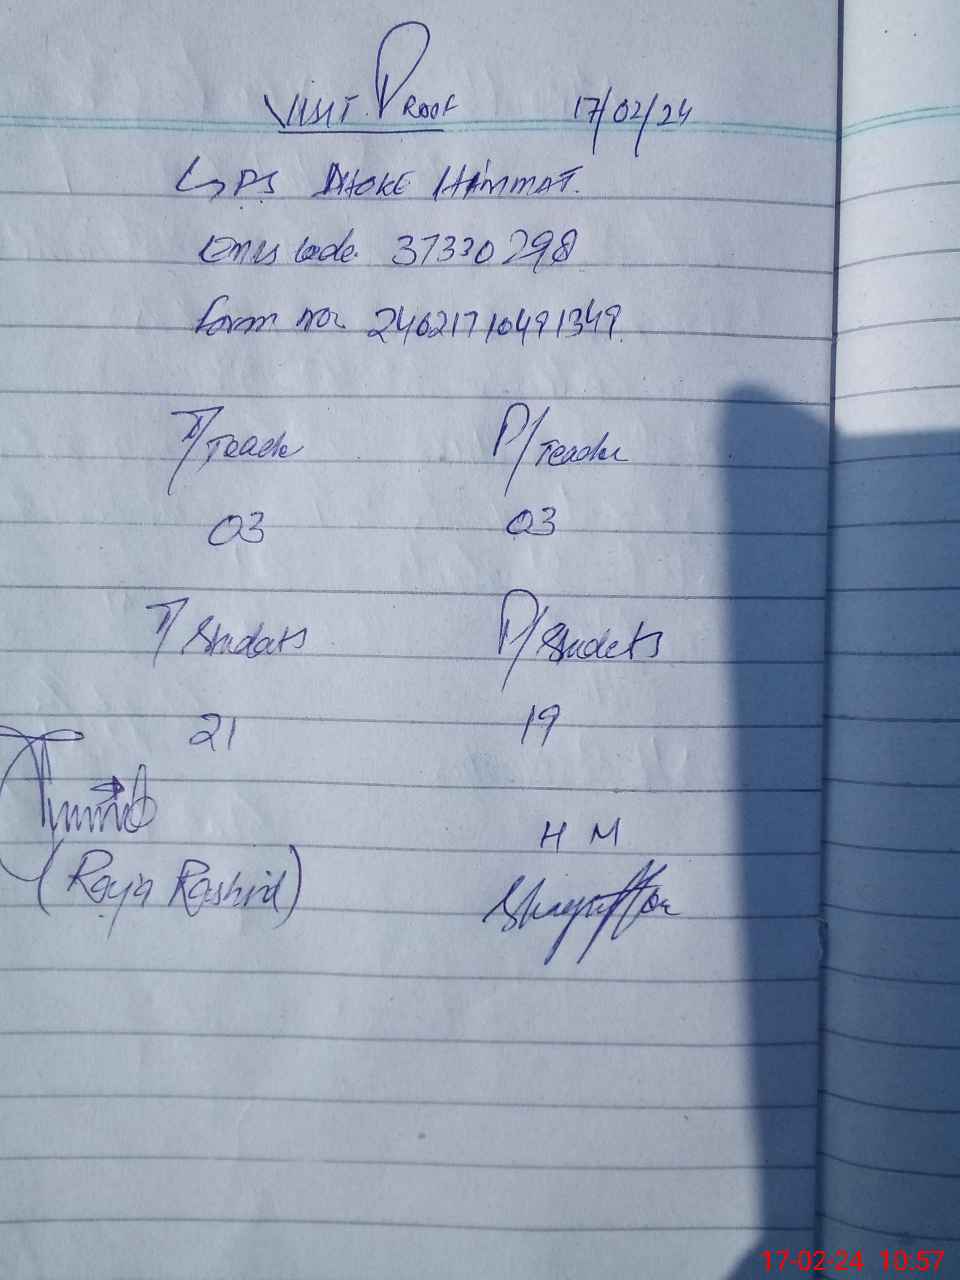 VISIT PROOF 17/02/24
GPS DHOKE HAMMAT.
Emis Code 37330298
Form no. 24021710491349.
T/Teach P/Teache
03 03
T/Studats P/Studets
21 19
H M
(Raja Rashid)
17-02-24 10:57